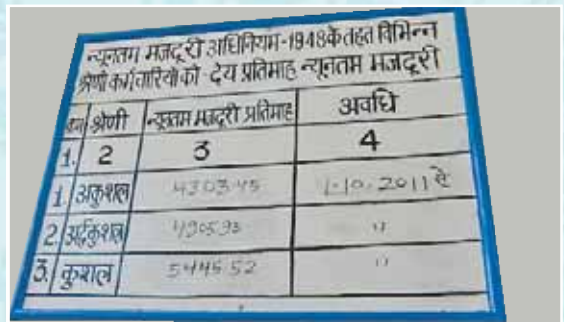 न्यूनतम मजदूरी अधिनियम-1948 के तहत विभिन्न
श्रेणी कर्मचारियों को देय प्रतिमाह न्यूनतम मजदूरी
श्रेणी न्यूनतम मजदूरी प्रतिमाह अवधि
1. 2 3 4
1. अकुशल 4303.45 1-10-2011 से
2. अर्द्धकुशल 4905.93 "
3. कुशल 5445.52 "